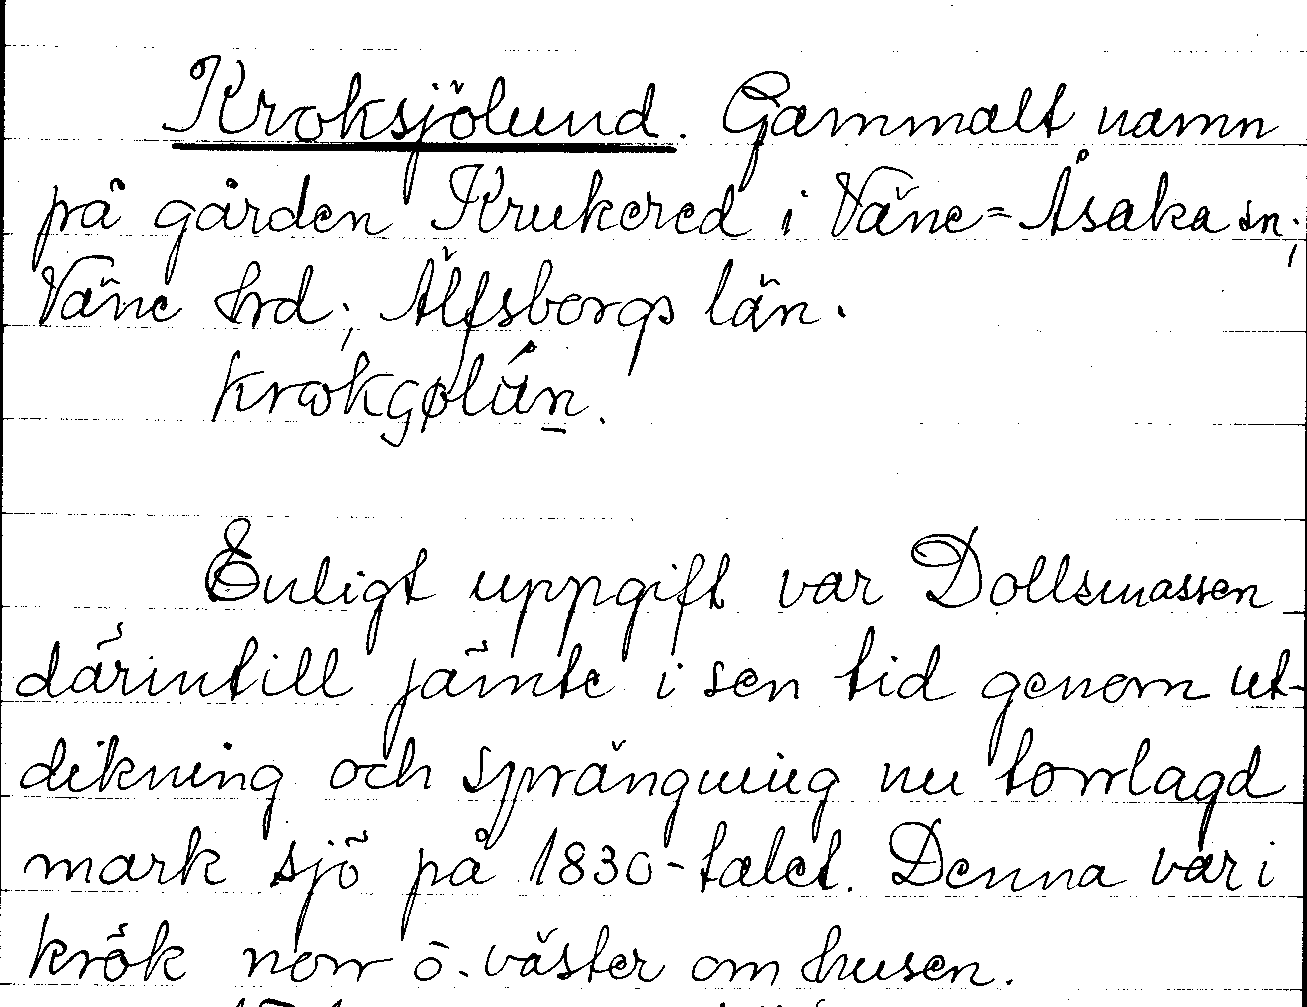 Kroksjölund. Gammalt namn
på gården Krukered i Väne-Åsaka sn;
Väne hrd; Älfsborgs län.
Enligt uppgift var Dollsmassen
därintill jämte i sen tid genom ut-
dikning och sprängning nu torrlagd
mark sjö på 1830-talet. Denna var i
krök norr o. väster om husen.